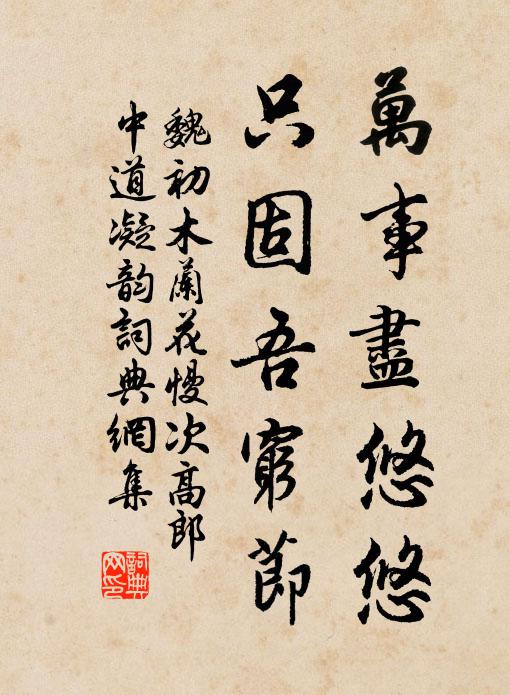 萬事盡悠悠
只固吾窮節
魏初木蘭花慢次高郎
中道凝韵詞典網集
詞典網印